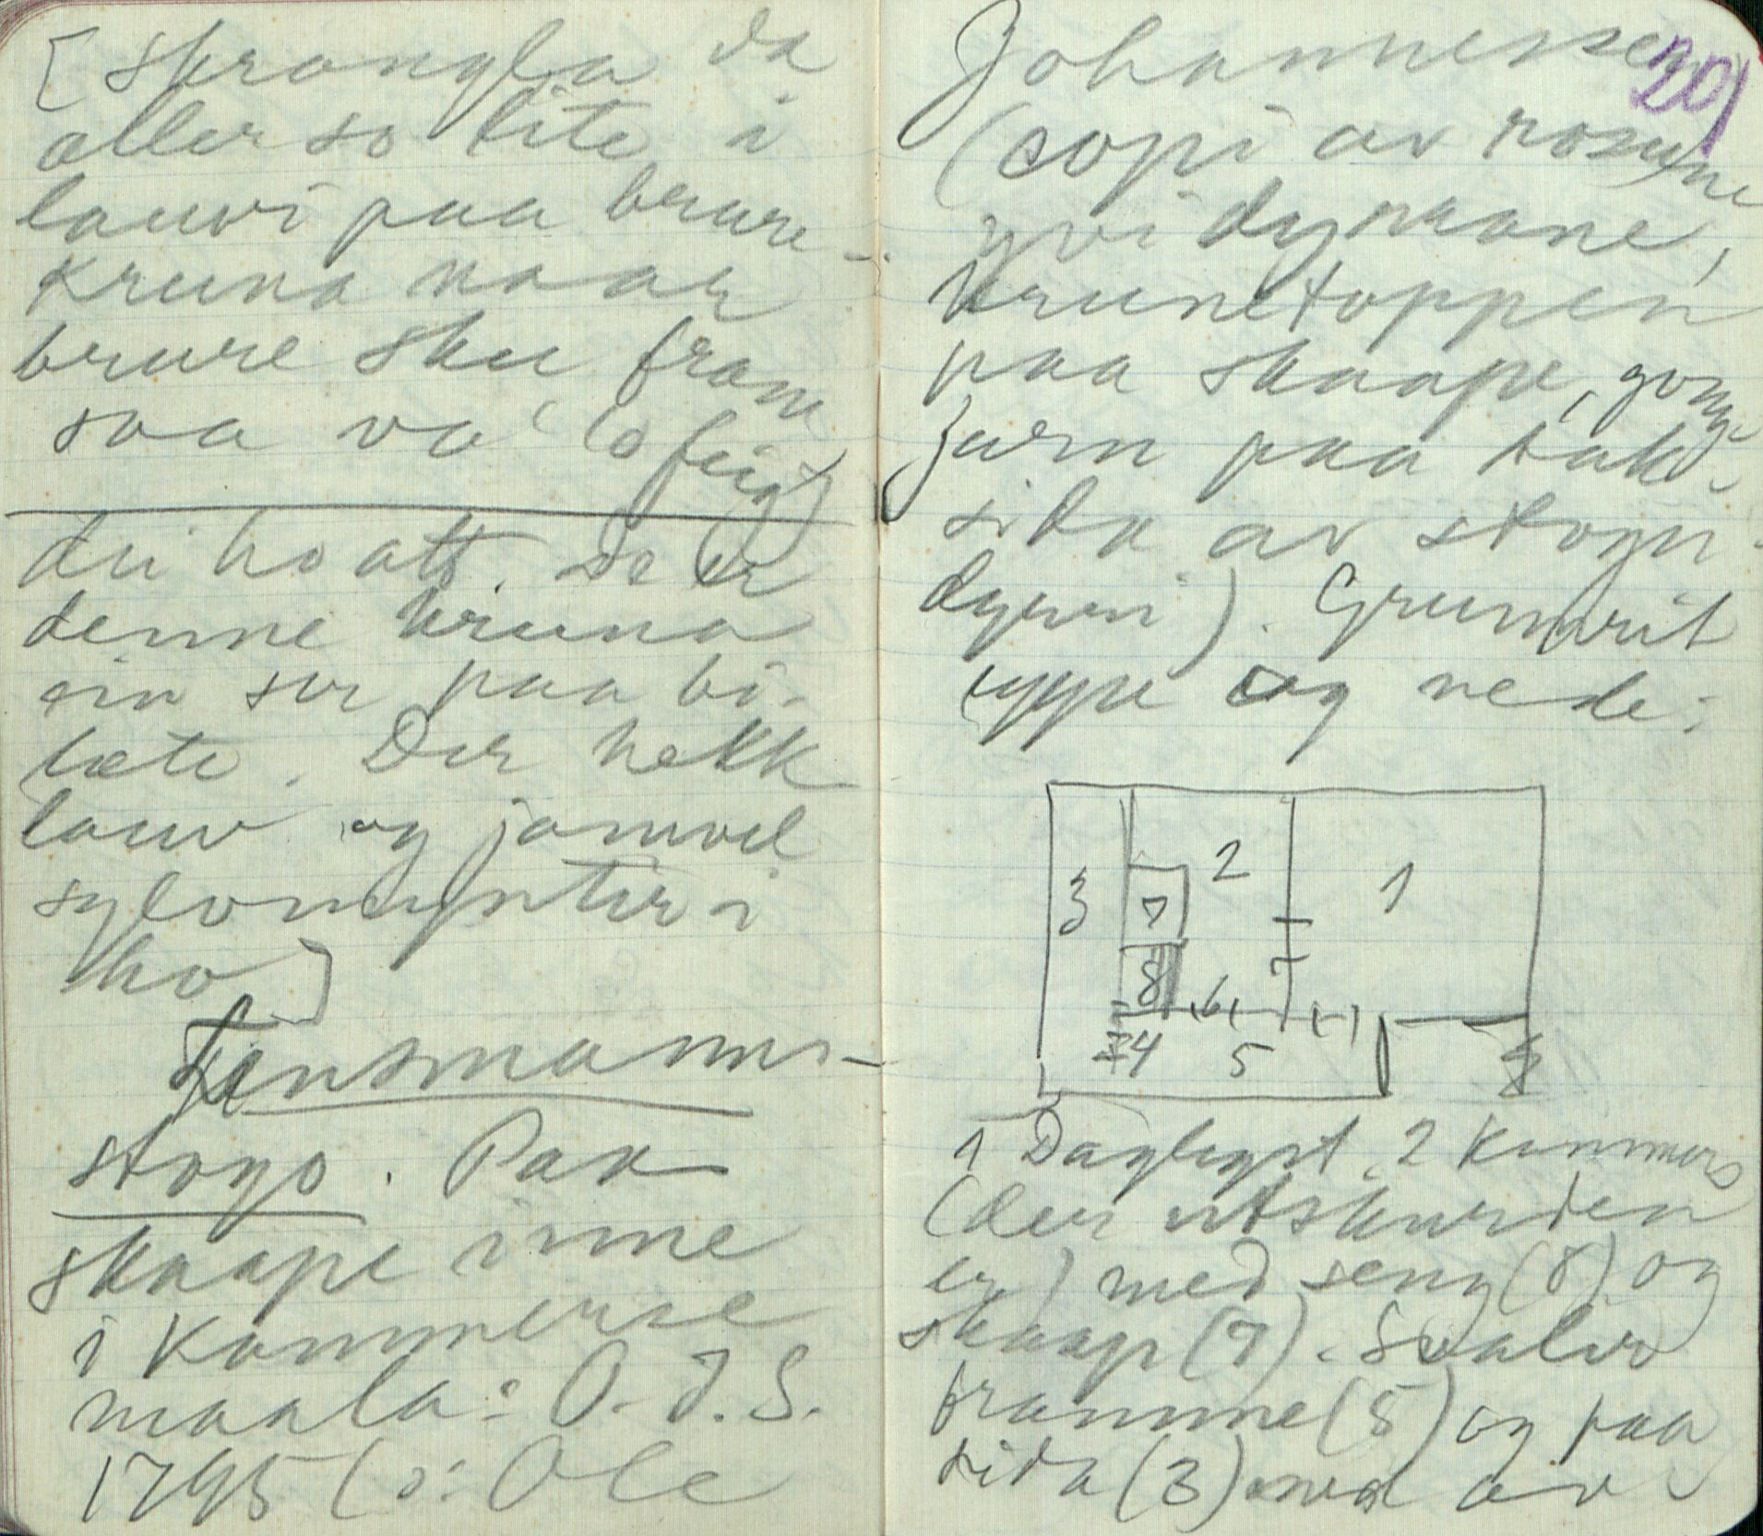 [Skrangla da
aller so lite i
lauvi paa brure-
kruna naar
brure sku fram
saa va' (o feig)
dei ho att. De er
denne kruna
ein ser paa bi-
læte. Der hekk
lauv og jamvel
sylvmyntir i
ho]
Lensmanns-
stogo. Paa
skaape inne
i Kammerse
maala: O. J. S.
1795 (ɔ: Ole
Johannessen)
20)
(copi av rosune
yvi dynnane,
krunetoppen
paa skaape, gong-
jarn paa bak-
sida av stogu-
dynni). Grunnrit
uppe og nede:
3 2 1
7
8 6
4 5
1 Daglegst. 2 Kammers
(den utskurden
er) med seng (8) og
skaap (7). Svalir
framme (5) og paa
sida (3) med av-